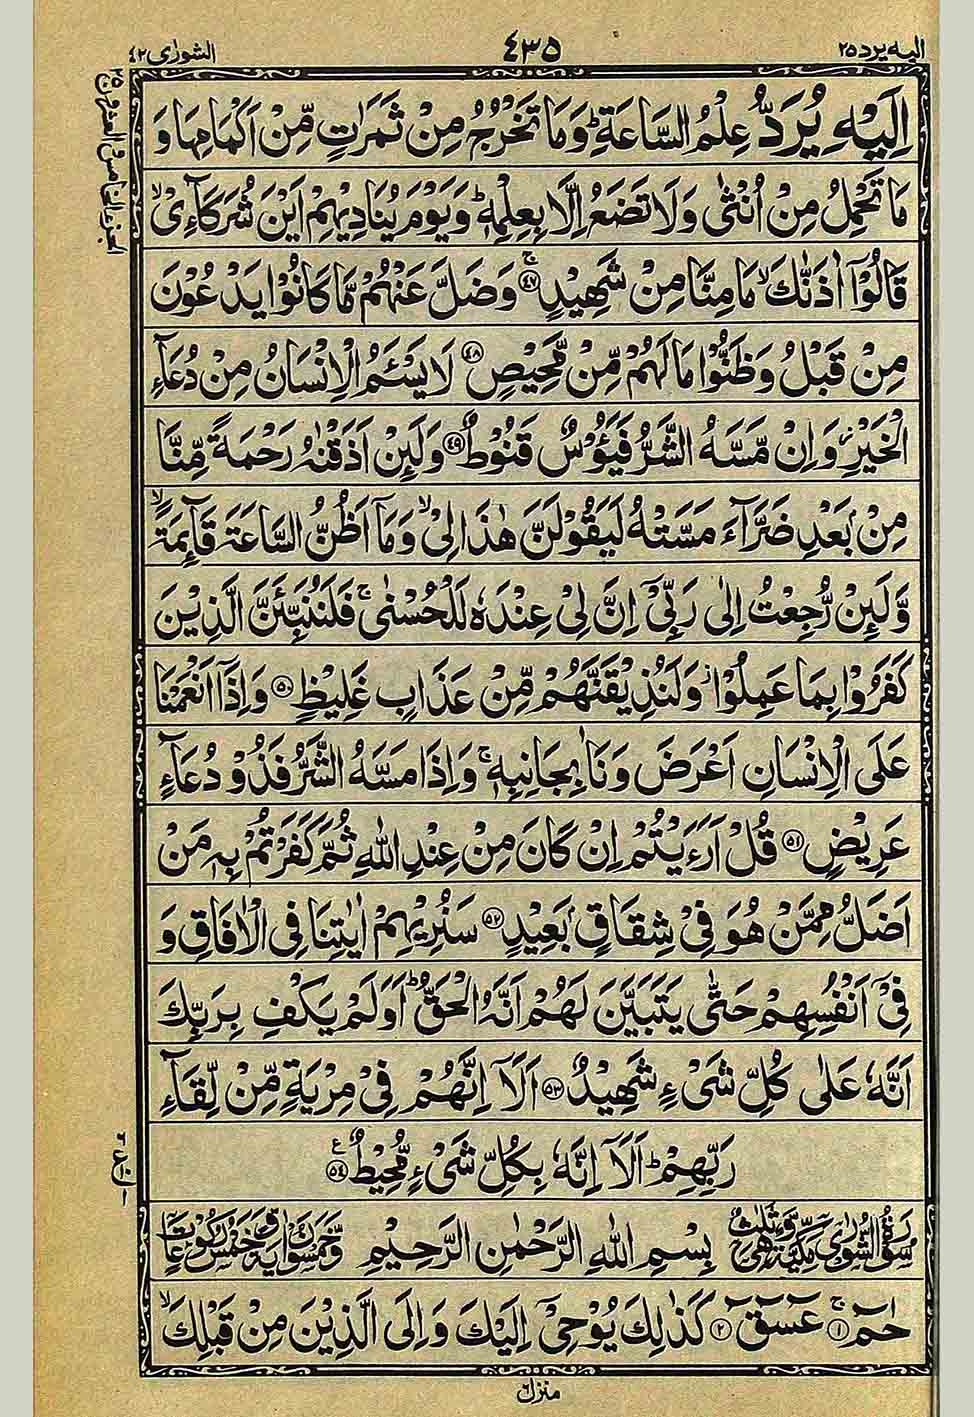 الیه یرد ۲۵
۴۳۵
الشورٰی ۴۲
الجزء الخامس و العشرون ۲۵
اِلَیْهِ یُرَدُّ عِلْمُ السَّاعَةِ ؕ وَمَا تَخْرُجُ مِنْ ثَمَرٰتٍ مِّنْ اَكْمَامِهَا وَ
مَا تَحْمِلُ مِنْ اُنْثٰی وَلَا تَضَعُ اِلَّا بِعِلْمِهٖ ؕ وَیَوْمَ یُنَادِیْهِمْ اَیْنَ شُرَكَآءِیْ ۙ
قَالُوْۤا اٰذَنّٰكَ ۙ مَا مِنَّا مِنْ شَهِیْدٍ ۚ ﴿۴۷﴾ وَضَلَّ عَنْهُمْ مَّا كَانُوْا یَدْعُوْنَ
مِنْ قَبْلُ وَظَنُّوْا مَا لَهُمْ مِّنْ مَّحِیْصٍ ﴿۴۸﴾ لَا یَسْـَٔمُ الْاِنْسَانُ مِنْ دُعَآءِ
الْخَیْرِ ؗ وَاِنْ مَّسَّهُ الشَّرُّ فَیَـُٔوْسٌ قَنُوْطٌ ﴿۴۹﴾ وَلَىِٕنْ اَذَقْنٰهُ رَحْمَةً مِّنَّا
مِنْۢ بَعْدِ ضَرَّآءَ مَسَّتْهُ لَیَقُوْلَنَّ هٰذَا لِیْ ۙ وَمَاۤ اَظُنُّ السَّاعَةَ قَآىِٕمَةً ۙ
وَّلَىِٕنْ رُّجِعْتُ اِلٰی رَبِّیْۤ اِنَّ لِیْ عِنْدَهٗ لَلْحُسْنٰی ۚ فَلَنُنَبِّئَنَّ الَّذِیْنَ
كَفَرُوْا بِمَا عَمِلُوْا ؗ وَلَنُذِیْقَنَّهُمْ مِّنْ عَذَابٍ غَلِیْظٍ ﴿۵۰﴾ وَاِذَاۤ اَنْعَمْنَا
عَلَی الْاِنْسَانِ اَعْرَضَ وَنَاٰ بِجَانِبِهٖ ۚ وَاِذَا مَسَّهُ الشَّرُّ فَذُوْ دُعَآءٍ
عَرِیْضٍ ﴿۵۱﴾ قُلْ اَرَءَیْتُمْ اِنْ كَانَ مِنْ عِنْدِ اللّٰهِ ثُمَّ كَفَرْتُمْ بِهٖ مَنْ
اَضَلُّ مِمَّنْ هُوَ فِیْ شِقَاقٍۭ بَعِیْدٍ ﴿۵۲﴾ سَنُرِیْهِمْ اٰیٰتِنَا فِی الْاٰفَاقِ وَ
فِیْۤ اَنْفُسِهِمْ حَتّٰی یَتَبَیَّنَ لَهُمْ اَنَّهُ الْحَقُّ ؕ اَوَلَمْ یَكْفِ بِرَبِّكَ
اَنَّهٗ عَلٰی كُلِّ شَیْءٍ شَهِیْدٌ ﴿۵۳﴾ اَلَاۤ اِنَّهُمْ فِیْ مِرْیَةٍ مِّنْ لِّقَآءِ
رَبِّهِمْ ؕ اَلَاۤ اِنَّهٗ بِكُلِّ شَیْءٍ مُّحِیْطٌ ﴿۵۴﴾ ع
سُوْرَةُ الشُّوْرٰی مَكِّیَّةٌ وَّهِیَ ثَلٰثٌ بِسْمِ اللّٰهِ الرَّحْمٰنِ الرَّحِیْمِ وَّخَمْسُوْنَ اٰیَةً وَّخَمْسُ رُكُوْعَاتٍ
حٰمٓ ۚ ﴿۱﴾ عٓسٓقٓ ﴿۲﴾ كَذٰلِكَ یُوْحِیْۤ اِلَیْكَ وَاِلَی الَّذِیْنَ مِنْ قَبْلِكَ ۙ
منزل ۶